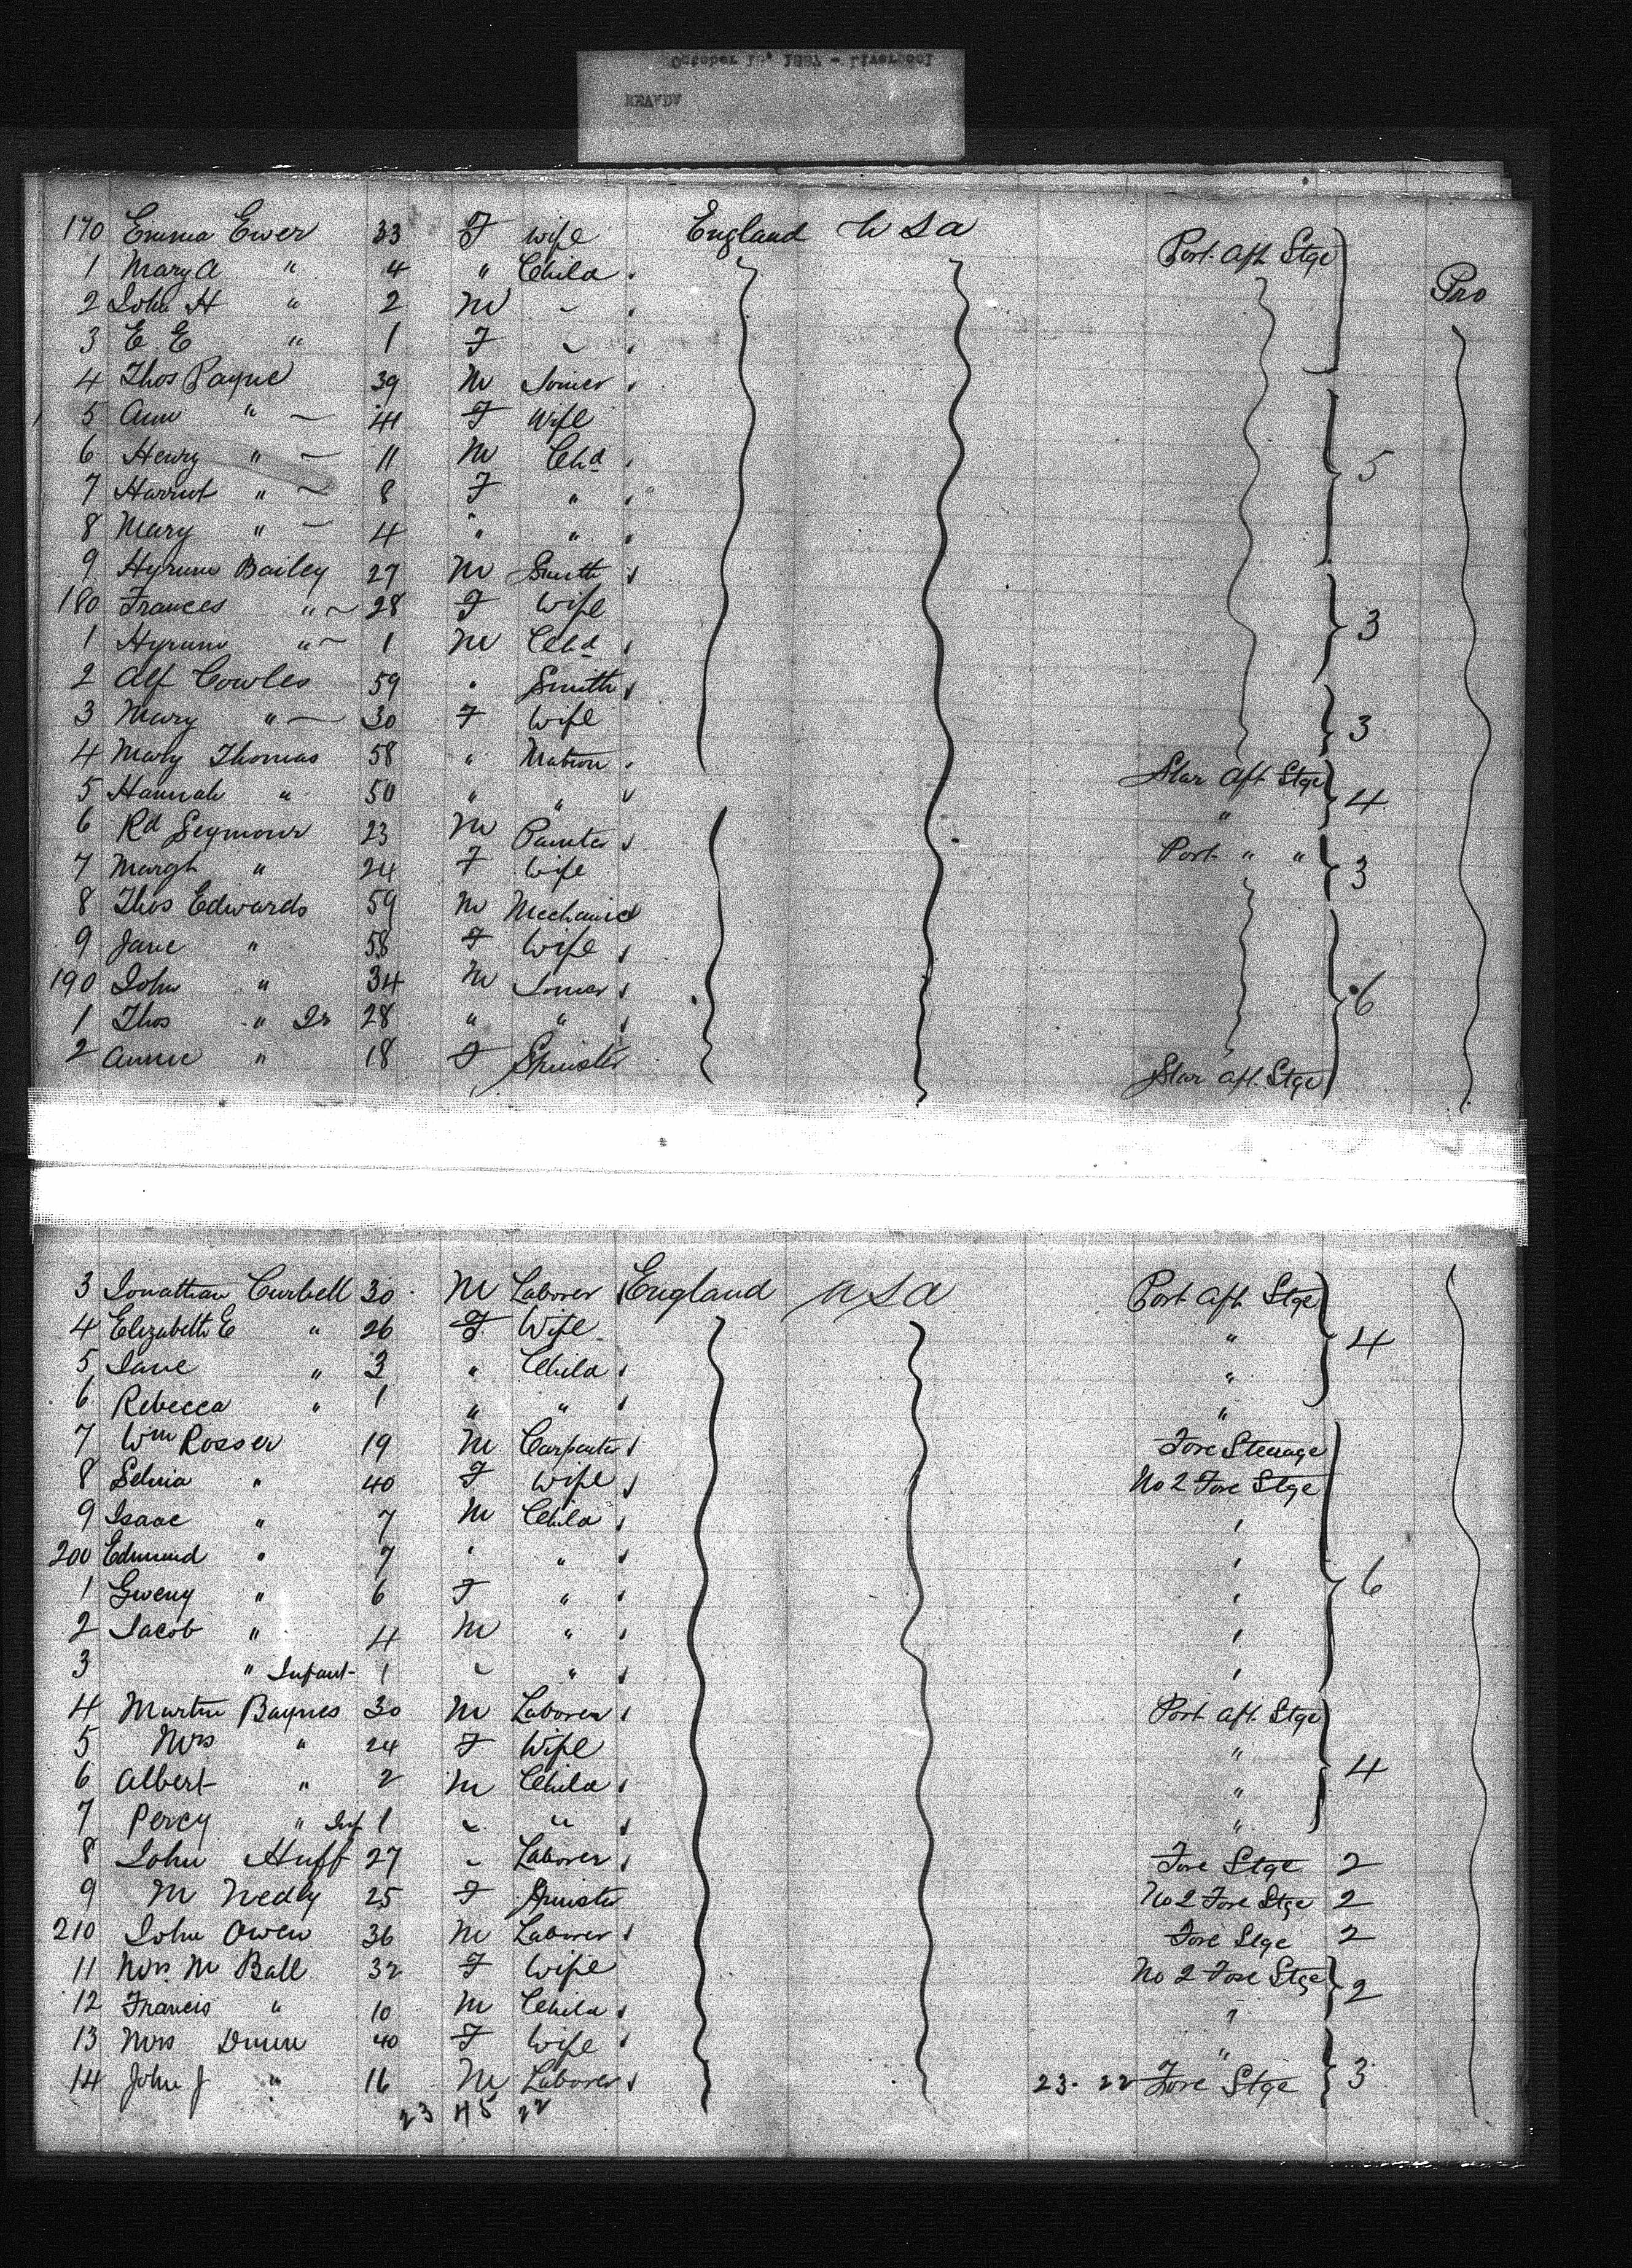 October 18, 1887 - Liverpool
NEAVDV
170 Emma Ewer 33 F Wife England U S A Port Aft Stge
1 Mary A " 4 " Child Pro
2 John H " 2 M "
3 E E " 1 F "
4 Thos Payne 39 M Joiner
5 Ann " 41 F Wife
6 Henry " 11 M Chd 5
7 Harriet " 8 F "
8 Mary " 4 " "
9 Hyrum Bailey 27 M Smith
180 Frances " 28 F Wife 3
1 Hyrum " 1 M Chd
2 Alf Cowles 59 " Smith
3 Mary " 30 F Wife 3
4 Mary Thomas 58 " Matron Star Aft Stge
5 Hannah " 50 " " " 4
6 Rd Seymour 23 M Painter Port " "
7 Margt " 24 F Wife 3
8 Thos Edwards 59 M Mechanic
9 Jane " 58 F Wife
190 John " 34 M Joiner 6
1 Thos " Jr 28 " "
2 Annie " 18 F Spinster Star Aft. Stge
3 Jonathan Curbell 30 M Laborer England U S A Port Aft Stge
4 Elizabeth E " 26 F Wife " 4
5 Jane " 3 " Child "
6 Rebecca " 1 " " "
7 Wm Rosser 19 M Carpenter Fore Steerage
8 Selina " 40 F Wife No 2 Fore Stge
9 Isaac " 7 M Child "
200 Edmund " 7 " " "
1 Gweny " 6 F " " 6
2 Jacob " 4 M " "
3 " Infant 1 " " "
4 Martin Baynes 30 M Laborer Port Aft. Stge
5 Mrs " 24 F Wife "
6 Albert " 2 M Child " 4
7 Percy " Inf 1 " " "
8 John Huff 27 " Laborer Fore Stge 2
9 M Nedly 25 F Spinster No 2 Fore Stge 2
210 John Owen 36 M Laborer Fore Stge 2
11 Mrs. M Ball 32 F Wife No 2 Fore Stge
12 Francis " 10 M Child " 2
13 Mrs Dunn 40 F Wife "
14 John J " 16 M Laborer 23. 22 Fore Stge 3
23 45 22